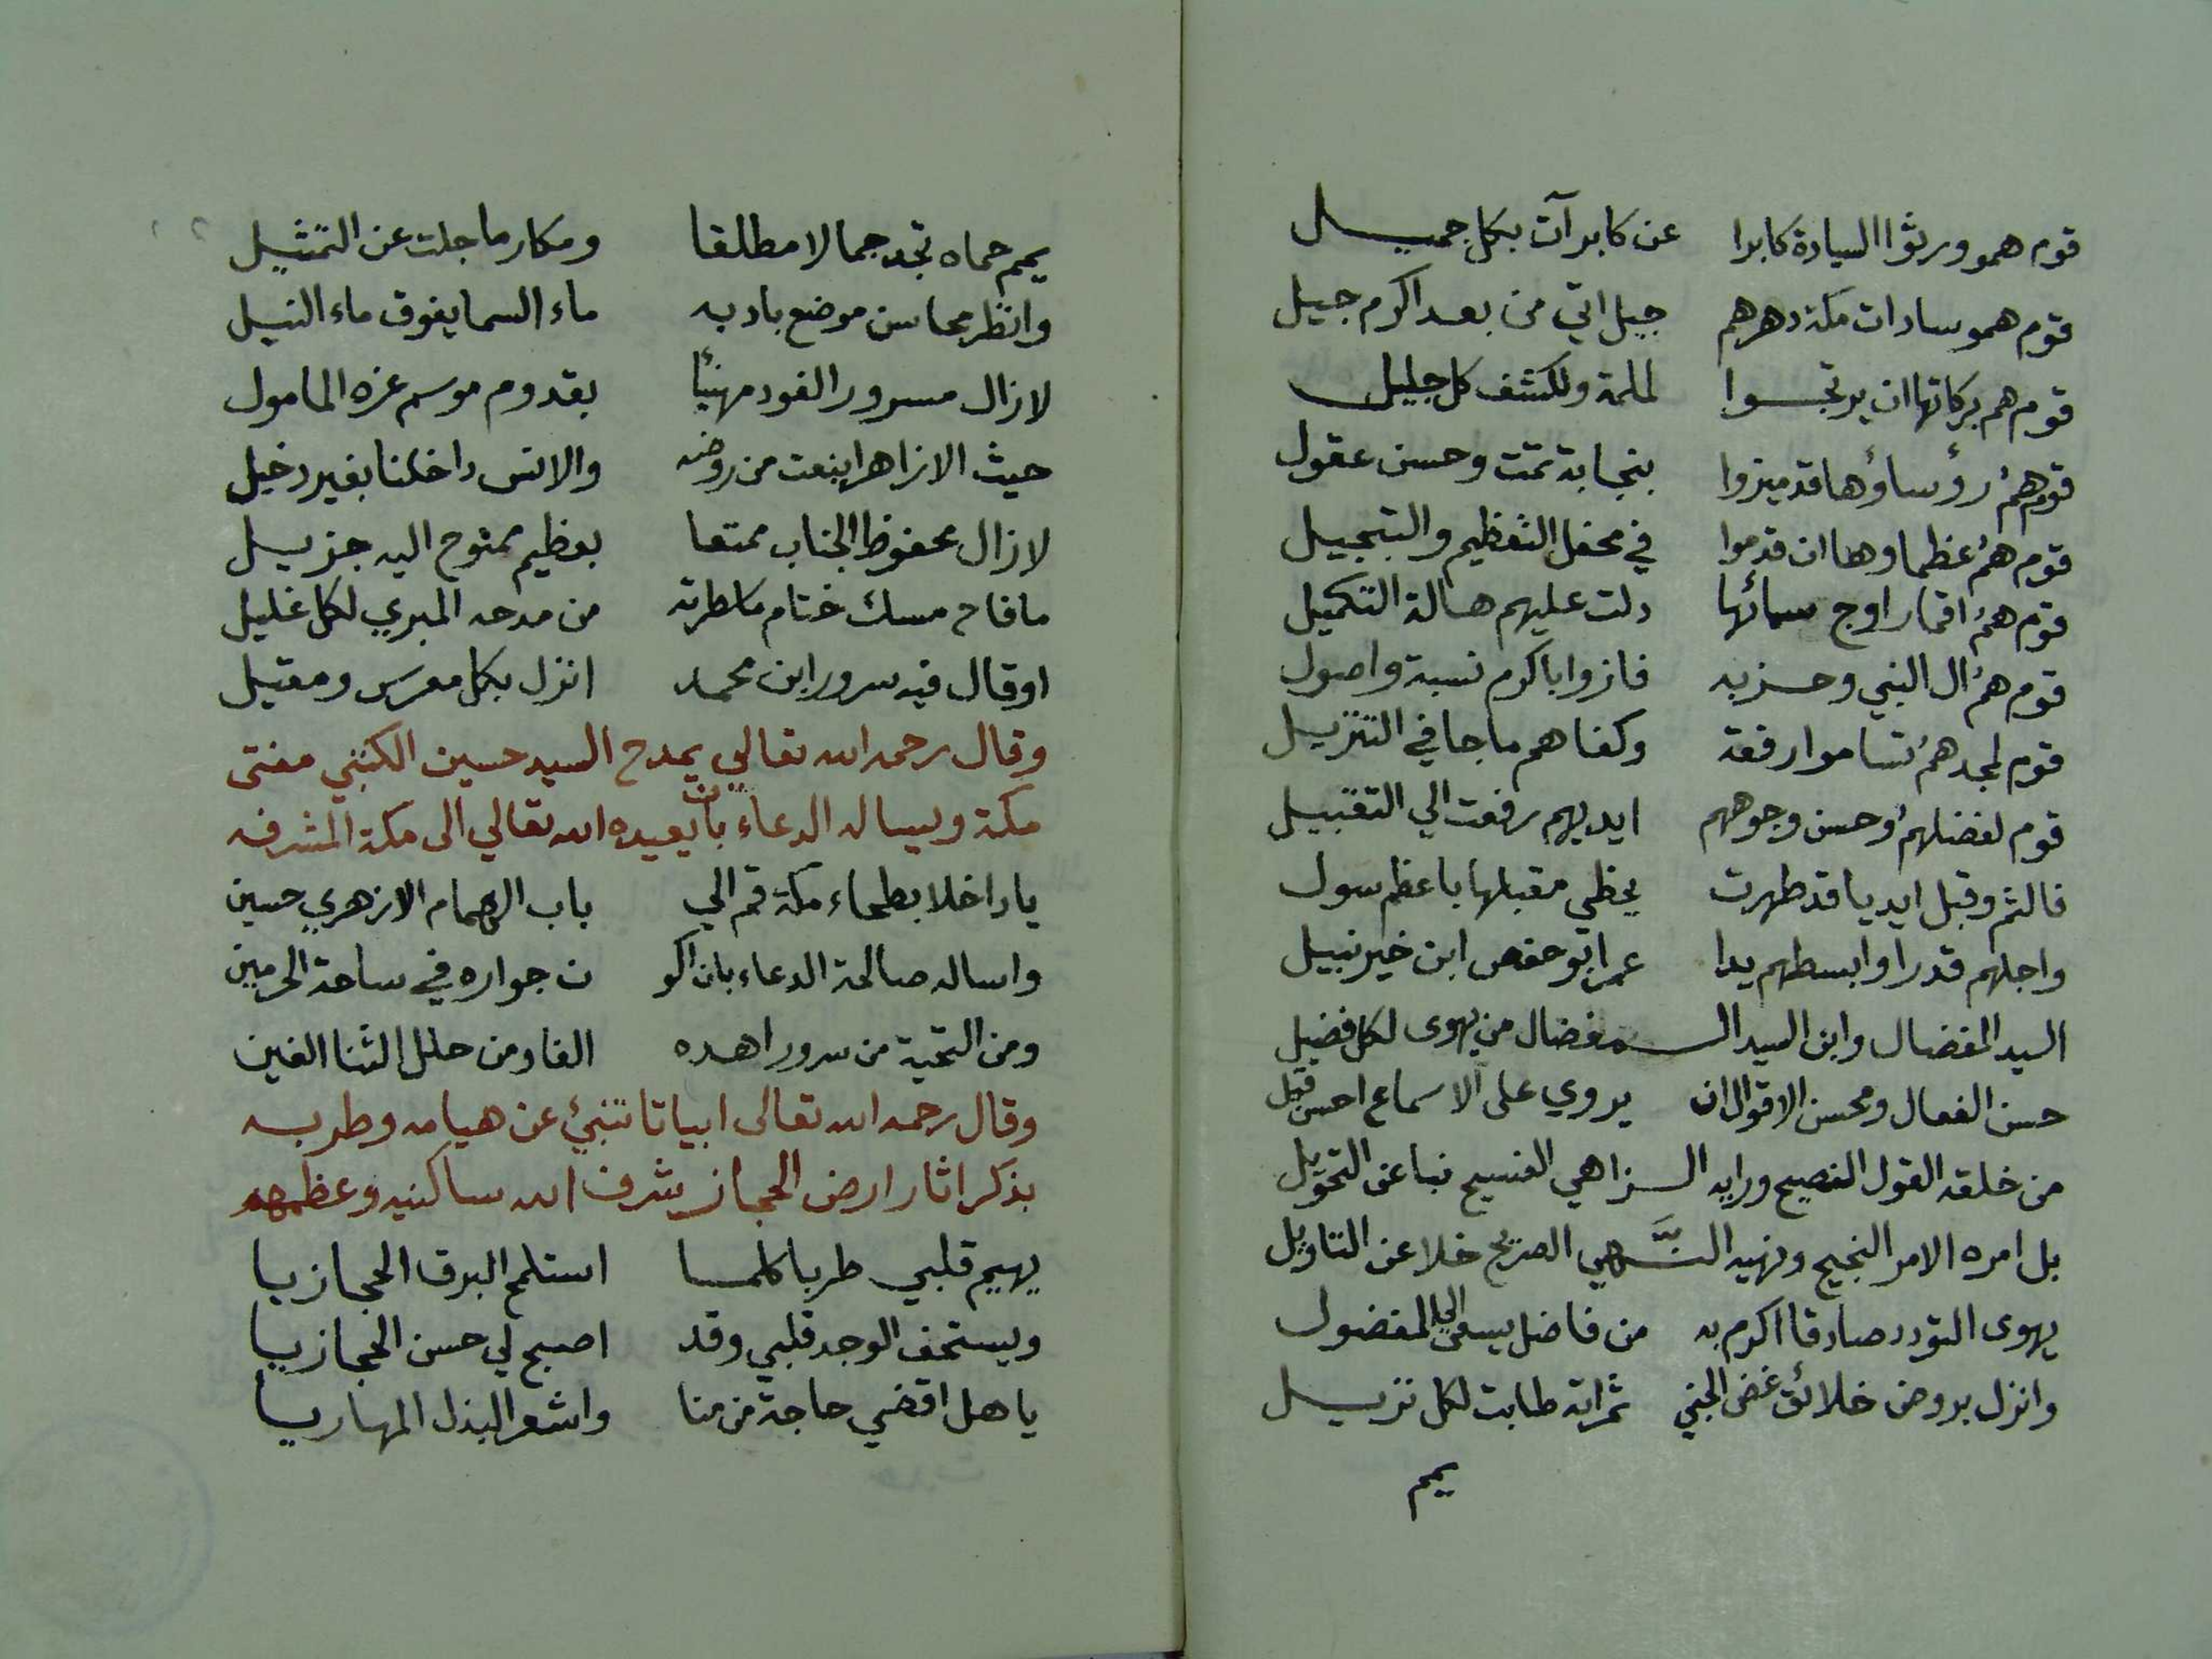 قوم همو ورثوا السيادة كابرا عن كابر آت بكل جميل
قوم همو سادات مكة دهرهم جيل اتي من بعد اكرم جيل
قوم هم بركاتها ان يرتجوا لملمة ولكشف كل جليل
قوم همُ رؤساؤها قد ميزوا بنجابة تمت وحسن عقول
قوم همُ عظماوها ان قدموا في محفل التعظيم والتبجيل
قوم همُ اقمار اوج سمائها دلت عليهم هالة التكميل
قوم همُ ال النبي وحزبه فازوا باكرم نسبة واصول
قوم لمجدهمُ تساموا رفعة وكفاهم ما جا في التنزيل
قوم لفضلهمُ وحسن وجوههم ايديهم رفعت الي التقبيل
فالثم وقبل ايديا قد طهرت يحظي مقبلها باعظم سول
واجلهم قدرا وابسطهم يدا عمر ابو حفص ابن خير نبيل
السيد المفضال وابن السيد الـ ـمفضال من يهوى لكل فضيل
حسن الفعال ومحسن الاقوال ان يروي على الاسماع احسن قيل
من خلقه القول الفصيح ورايه الـ ـزاهي الفسيح نبا عن التحويل
بل امره الامر النجيح ونهيه النـَّ ـهي الصريح خلا عن التاويل
يهوى التودد صادقا اكرم به من فاضل يسعى الي المفضول
وانزل بروض خلائق غض الجني ثمراته طابت لكل نزيل
يمم
يمم حماه تجد جمالا مطلقا ومكارما جلت عن التمثيل
وانظر محاسن موضع باد به ماء السما يفوق ماء النيل
لا زال مسرور الفود مهنئا بقدوم موسم عزه المامول
حيث الازاهر اينعت من روضه والانس داخلنا بغير دخيل
لا زال محفوظ الجناب ممتعا بعظيم ممنوح اليه جزيل
ما فاح مسك ختام ما طرته من مدحه المبري لكل غليل
او قال فيه سرور ابن محمد انزل بكل معرس ومقيل
وقال رحمه الله تعالي يمدح السيد حسين الكتبي مفتى
مكة ويساله الدعاء بان يعيده الله تعالي الى مكة المشرفه
يا داخلا بطحاء مكة قم الي باب الهمام الازهري حسين
واساله صالحة الدعاء بان اكو ن جواره في ساحة الحرمين
ومن التحية من سرور اهده الفا ومن حلل الثنا الفين
وقال رحمه الله تعالى ابياتا تنبئ عن هيامه وطربه
بذكر اثار ارض الحجاز شرف الله ساكنيه وعظمهم
يهيم قلبي طربا كلما استلمح البرق الحجازيا
ويستخف الوجد قلبي وقد اصبح لي حسن الحجازيا
يا هل اقضي حاجة من منا واشعر البذل المهاريا